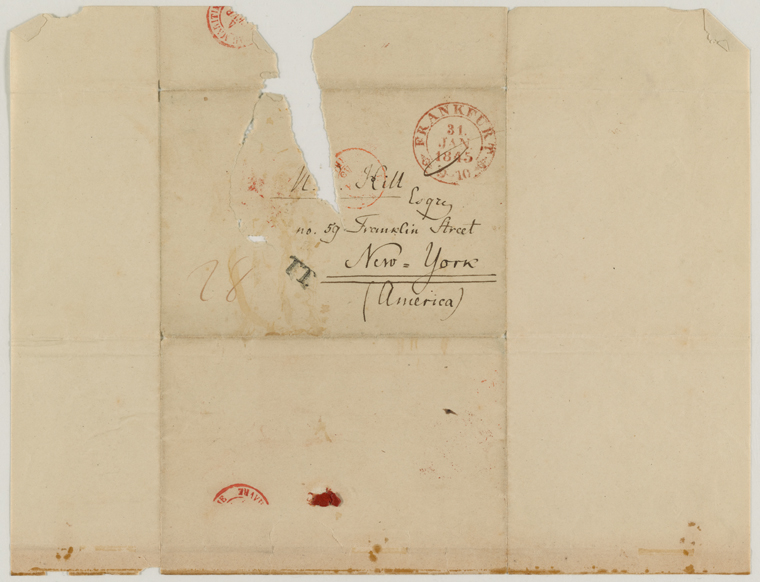 FRANKFURT
31.
JAN
1845
Hill
Esqre
no. 59 Franklin Street
New=York
(America)
28
TT
HAVRE